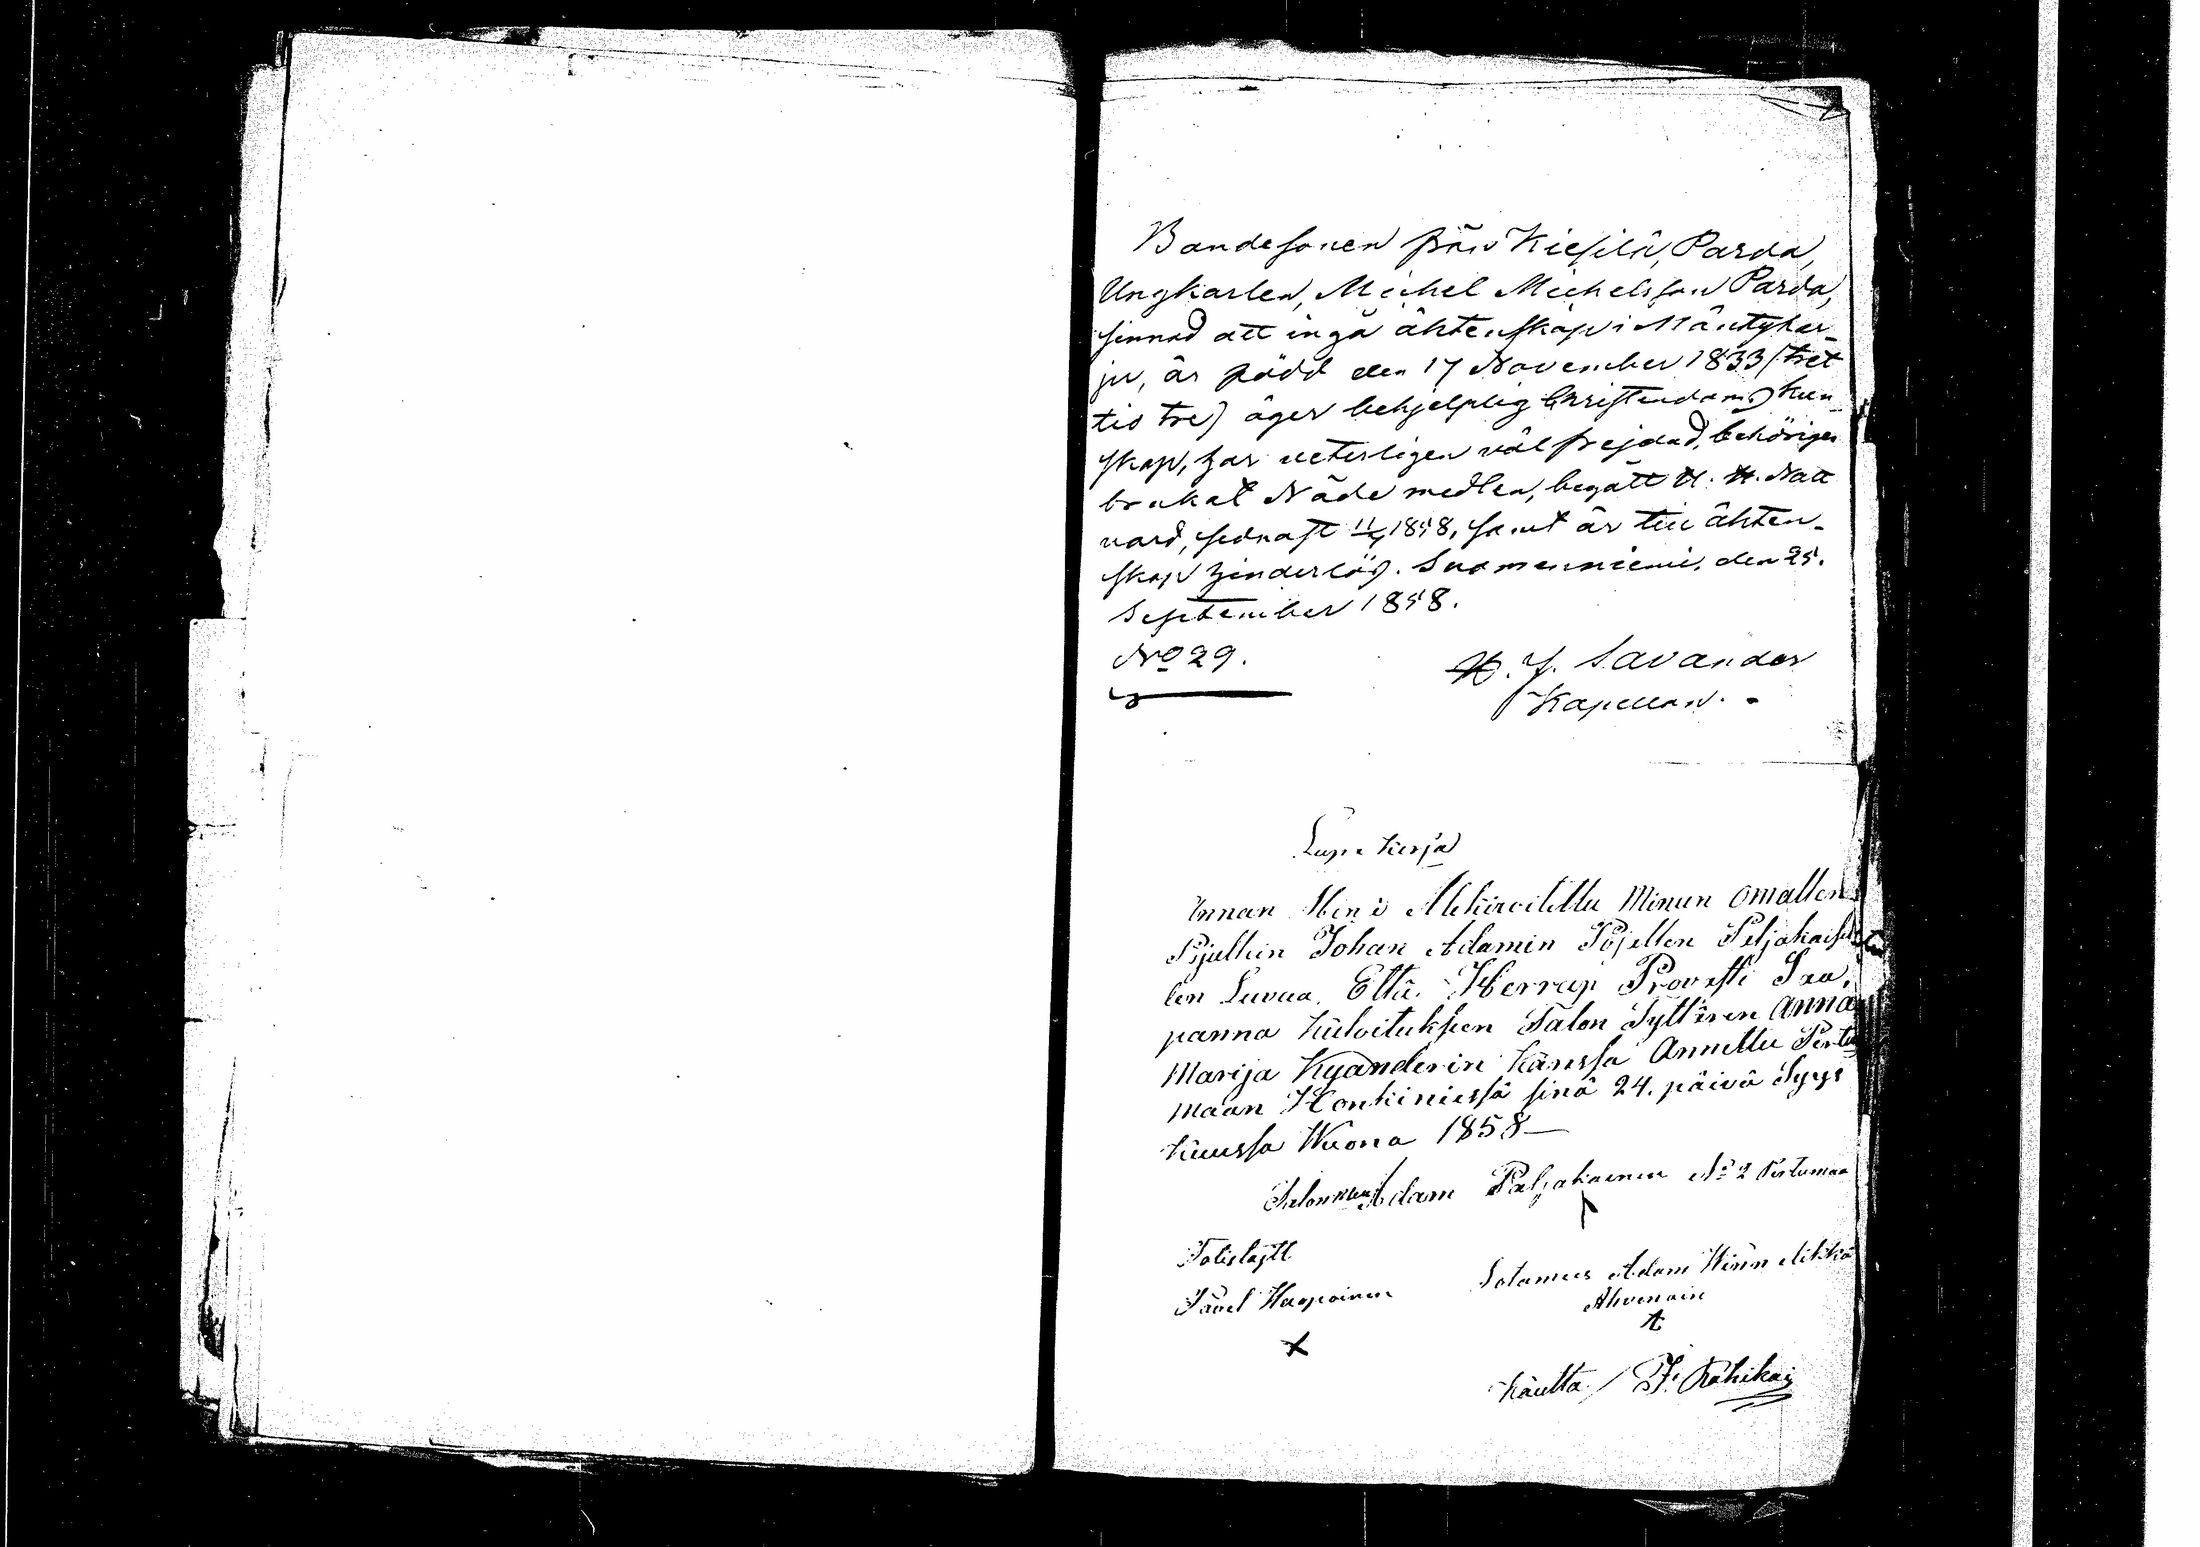 Bondesonen från Kiesilä, Parda,
Ungkarlen, Michel Michelsson Parda,
sinnad att ingå äktenskap i Mäntyhar-
ju, är född den 17 November 1833 (tret
tio tre) äger behjelplig Christendoms kun-
skap, har veterligen väl frejdad, behörigen
brukat Nåde medlen, begått H. H. Natt
vard, sednast 11/7 1858, samt är till äkten-
skap hinderlös. Suomenniemi, den 25.
September 1858.
No 29.
H. J. Savander
Kapellan.
Lupa kirja
Annan Minä Alekirvoitettu Minun omallen
Pojallein Johan Adamin Pojallen Paljakaisel
len Luvan. Että Herran Provasti Saa,
panna kuloituksen Talon Tyttären Anna
Marija Kyanderin kanssa Annettu Pertu
maan Honkiniessä sinä 24. päivä Syys
kuussa Wuona 1858—
Talon Adam Paljakainen No 2 Pertumaa
Totistajtt
Påvel Haapoinen
Sotamies Adam Hinn Mikkä
Ahvenain
kautta / J. Rahikai